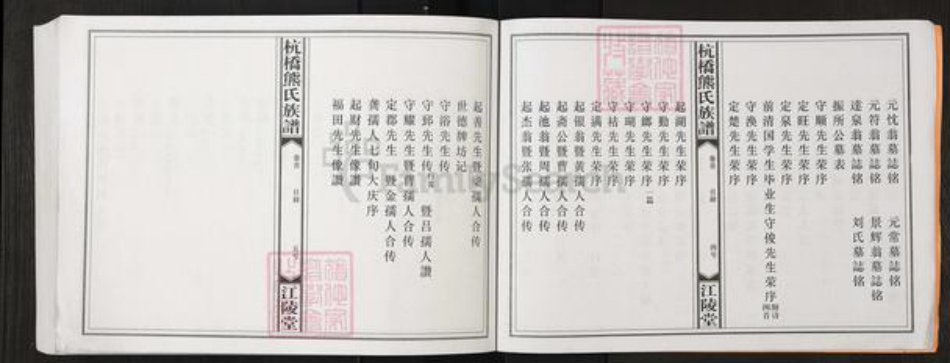 杭橋熊氏族譜
卷首
目錄
江陵堂
元忱翁墓誌铭
元常墓誌铭
元符翁墓誌铭
景辉翁墓誌铭
達泉翁墓誌铭
刘氏墓誌铭
振所公墓表
守顺先生荣序
定旺先生荣序
定泉先生荣序
前清国学生毕业生守俊先生荣序
守涣先生荣序
定楚先生荣序
起湖先生荣序
守勤先生荣序
守鄉先生荣序二篇
守瑚先生荣序
守祜先生荣序
定满先生荣序
起银翁暨黄孺人合传
起斋公暨曹孺人合传
起池翁暨周孺人合传
起杰翁暨张孺人合传
杭橋熊氏族譜
卷首
目錄
江陵堂
起善先生暨 孺人合传
世德牌坊记
守浴先生传
守邱先生传 暨吕孺人讃
守耀先生暨曹孺人合传
定郡先生 暨金孺人合传
龚孺人七旬大庆序
起财先生像讃
福田先生像讃
FamilySearch